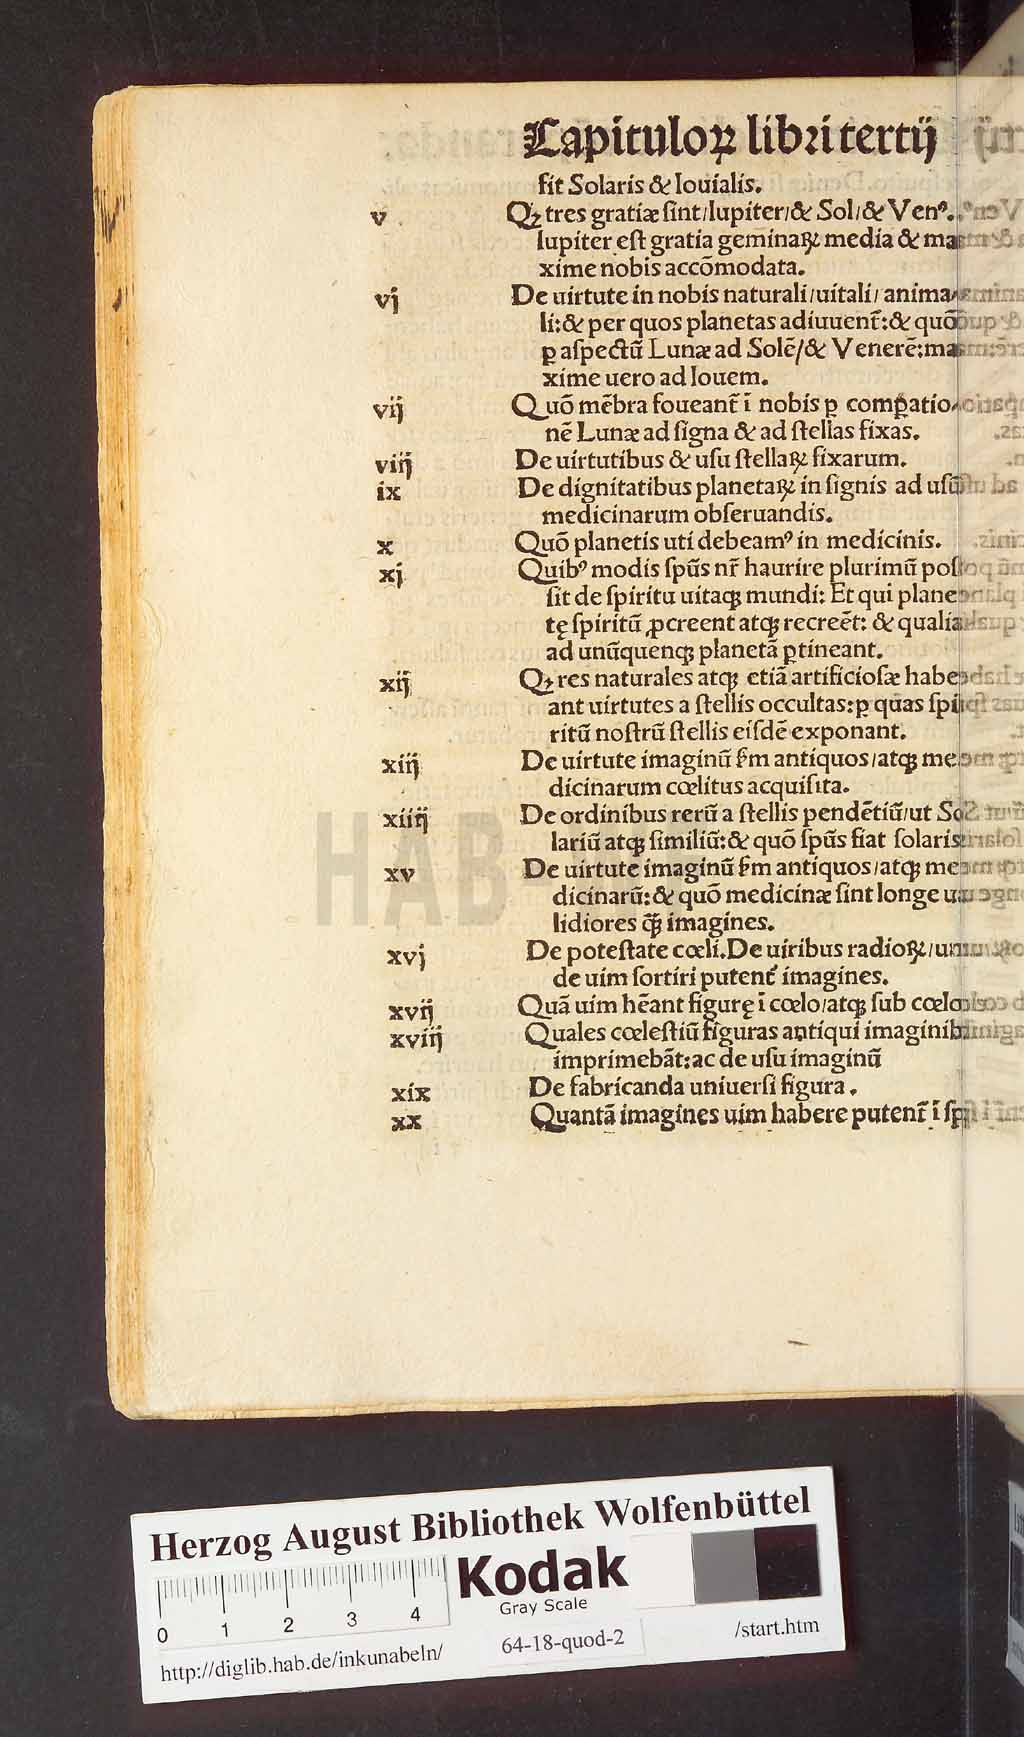 Capituloꝝ libri tertij
fit Solaris & Iouialis.
v Qꝫ tres gratiæ ſint/Iupiter/& Sol/& Venꝰ.
Iupiter eſt gratia geminaꝝ media & ma
xime nobis accōmodata.
vj De uirtute in nobis naturali/uitali/anima/
li:& per quos planetas adiuuent̃:& quō
ꝑ aſpectū Lunæ ad Solē/& Venerē:ma
xime uero ad Iouem.
vij Quō mēbra foueant̃ ī nobis ꝑ comꝑatio/
nē Lunæ ad ſigna & ad ſtellas fixas.
viij De uirtutibus & uſu ſtellaꝝ fixarum.
ix De dignitatibus planetaꝝ in ſignis ad uſū
medicinarum obſeruandis.
x Quō planetis uti debeamꝰ in medicinis.
xj Quibꝰ modis ſpūs nr̄ haurire plurimū poſ
ſit de ſpiritu uitaqꝫ mundi: Et qui plane
tę ſpiritū ꝓcreent atqꝫ recreēt: & qualia
ad unūquenqꝫ planetā ꝑtineant.
xij Qꝫ res naturales atqꝫ etiā artificioſæ habe
ant uirtutes a ſtellis occultas:ꝑ quas ſpi
ritū noſtrū ſtellis eiſdē exponant.
xiij De uirtute imaginū ẜm antiquos/atqꝫ me
dicinarum cœlitus acquiſita.
xiiij De ordinibus rerū a ſtellis pendētiū/ut So
lariū atqꝫ ſimiliū:& quō ſpūs fiat ſolaris.
xv De uirtute imaginū ẜm antiquos/atqꝫ me
dicinarū:& quō medicinæ ſint longe ua
lidiores q̄ꝫ imagines.
xvj De poteſtate cœli.De uiribus radioꝝ/un
de uim ſortiri putent̃ imagines.
xvij Quā uim hēant figurę ī cœlo/atqꝫ ſub cœlo
xviij Quales cœleſtiū figuras antiqui imaginib.
imprimebāt:ac de uſu imaginū
xix De fabricanda uniuerſi figura.
xx Quantā imagines uim habere putent̃ ī ſp
HAB
Herzog August Bibliothek Wolfenbüttel
Kodak
Gray Scale
0 1 2 3 4
http://diglib.hab.de/inkunabeln/
64-18-quod-2
/start.htm